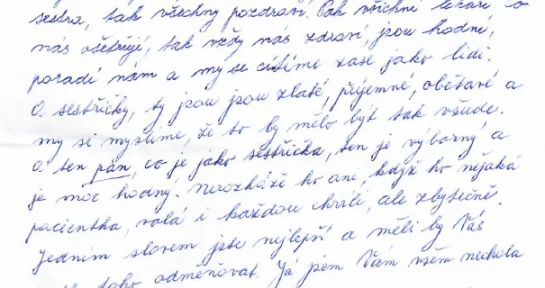 sestra, tak všechny pozdraví. Pak všichni lékaři co
nás ošetřují, tak vždy nás zdraví, jsou hodní,
poradí nám a my se cítíme zase jako lidi.
A sestřičky, ty jsou jsou zlaté, příjemné, obětavé a
my si myslíme, že to by mělo být tak všude.
A ten pán, co je jako sestřička, ten je výborný a
je moc hodný. Nerozhází ho ani, když ho nějaká
pacientka, volá i každou chvíli, ale zbytečně.
Jedním slovem jste nejlepší a měli by Vás
toho odměňovat. Já jsem Vám všem nechala